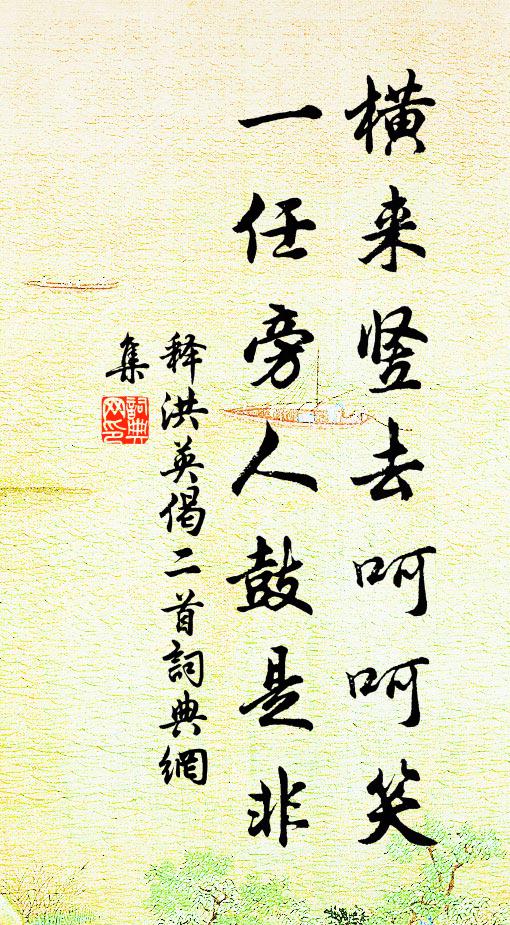 横来竖去呵呵笑
一任旁人鼓是非
释洪英偈二首詞典網
集
詞典
网印